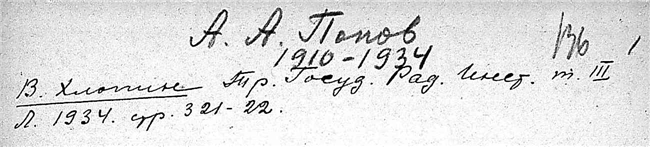 А. А. Попов
1910-1934
В. Хлопин Тр. Госуд. Рад. Инст. т. III
Л. 1934. стр. 321-22.